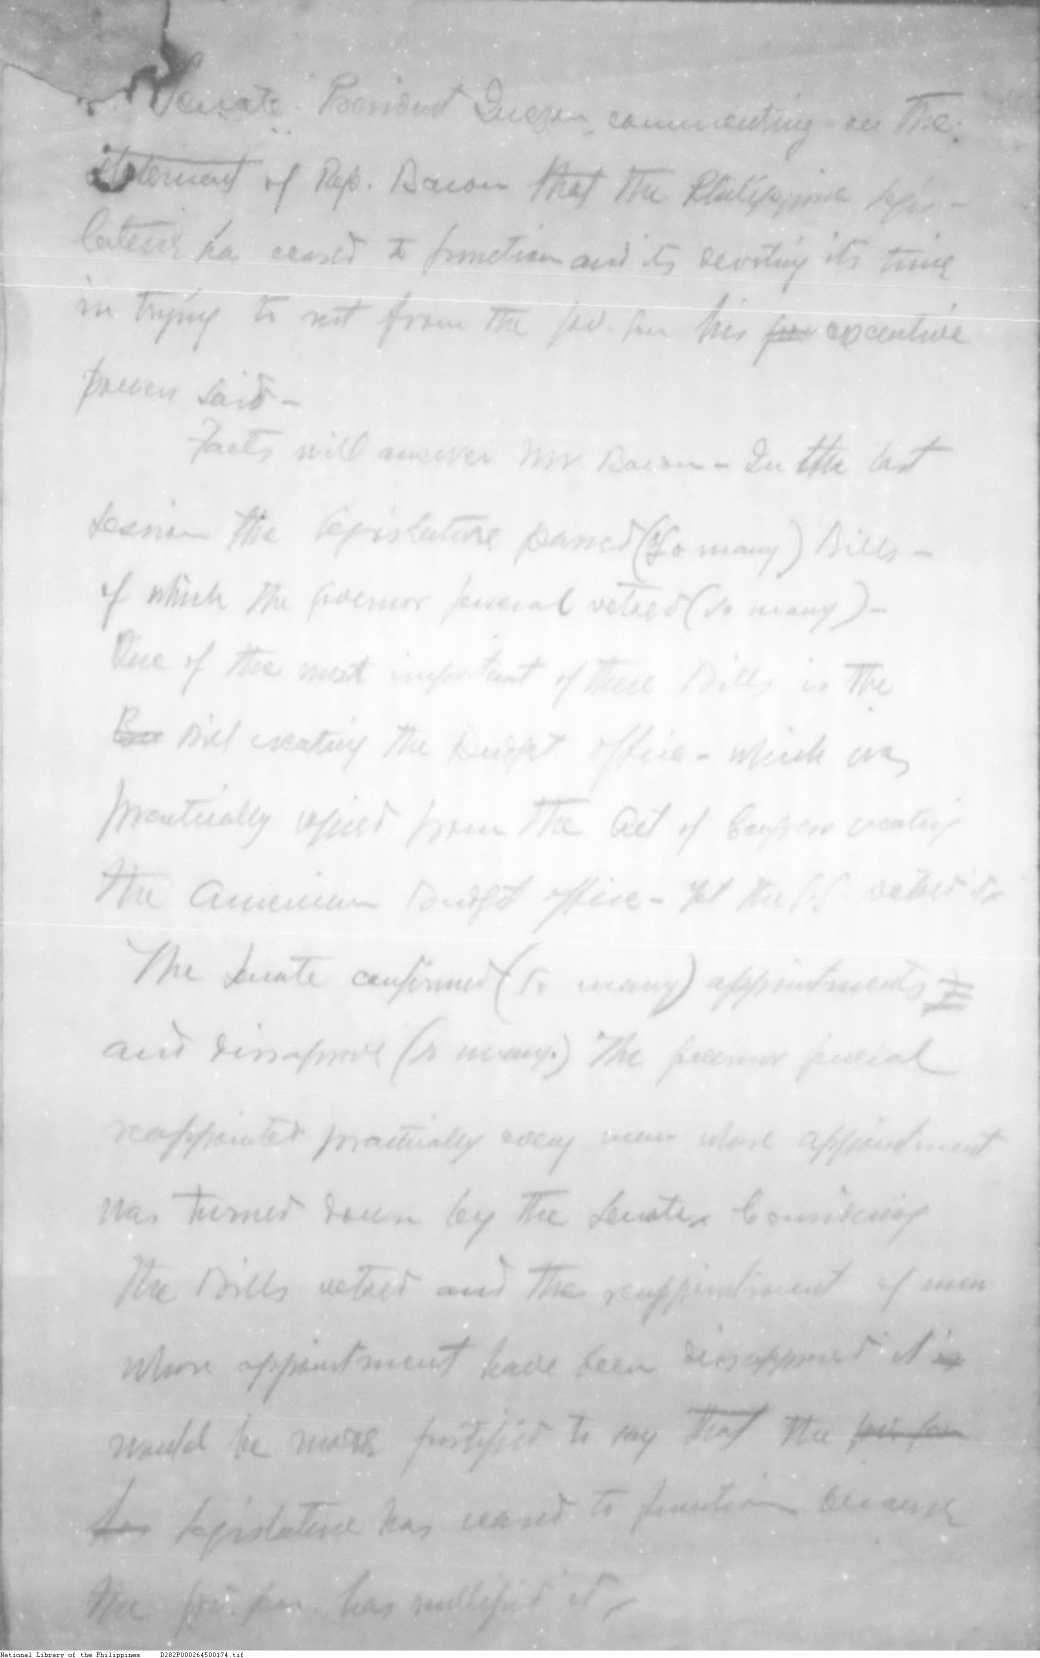 Senate President Quezon commenting on the
statement of Rep. Bacon that the Philippine legis-
lature has ceased to function and its devoting its time
in trying to from the Gov. Gen his executive
powers said -
Facts will answer Mr Bacon - In the last
session the legislature passed (so many) Bills -
of which the governor general vetoed (so many) -
One of the most important of these Bills is the
Bill creating the Budget office - which was
practically copied from the Act of Congress creating
the American Budget office - Yet the G.G. vetoed it
The Senate confirmed (so many) appointments
and disapprove (so many.) The governor general
reappointed practically every man whose appointment
was turned down by the Senate. Considering
the Bills vetoed and the reappointment of men
whose appointment have been disapproved it is
would be more justified to say that the gov. gen
has legislature has ceased to function because
the gov. gen. has nullified it.
National Library of the Philippines D282P000264500174.tif